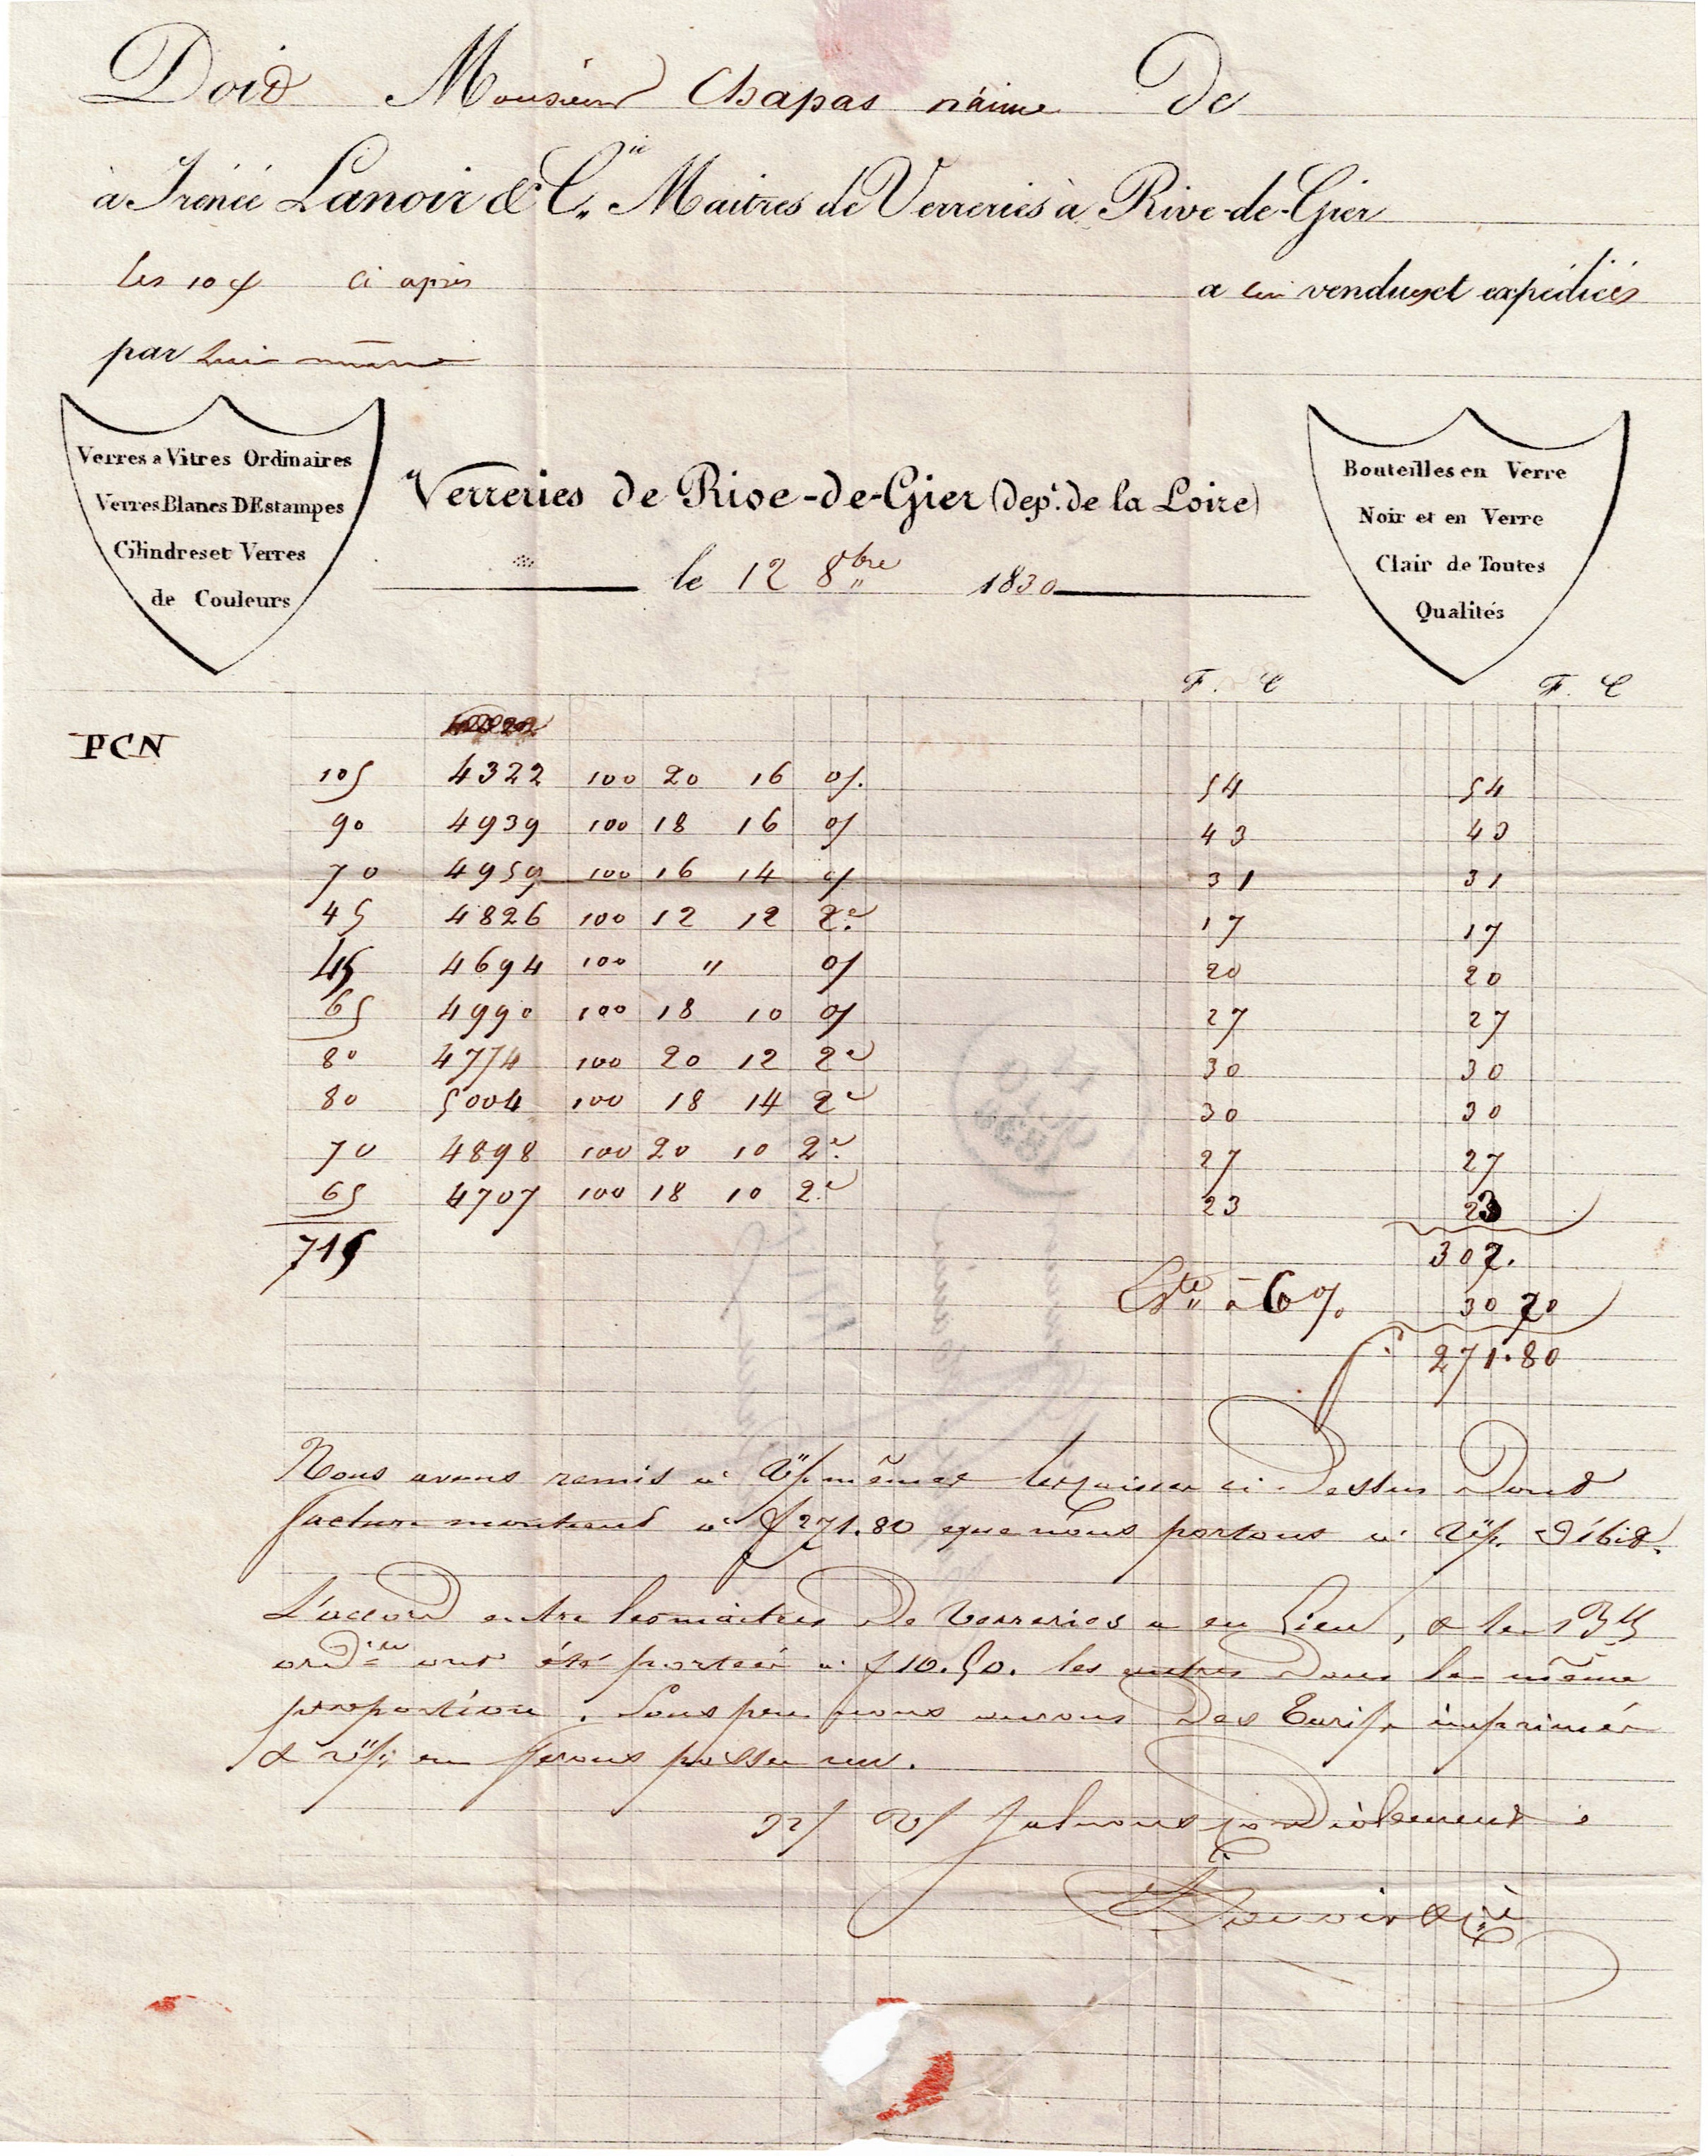 Doit Monsieur Chapas n'aimé De
à Irénée Lanoir & C.ie Maitres de Verreries à Rive-de-Gier
les 10 ci après a lui vendues et expédiées
par lui même
Verres a Vitres Ordinaires
Verres Blancs DEstampes
Cilindres et Verres
de Couleurs
Verreries de Rive-de-Gier (dep.t de la Loire)
le 12 8bre 1830
Bouteilles en Verre
Noir et en Verre
Clair de Toutes
Qualités
F. C F. C
PCN
105 4322 100 20 16 o/. 54 54
90 4939 100 18 16 o/ 43 43
70 4959 100 16 14 o/ 31 31
45 4826 100 12 12 2.e 17 17
45 4694 100 " o/ 20 20
65 4990 100 18 10 o/ 27 27
80 4774 100 20 12 2e 30 30
80 5004 100 18 14 2e 30 30
70 4898 100 20 10 2.e 27 27
65 4707 100 18 10 2.e 23 23
715
302.
Es.te à 6 % 30 20
f. 271.80
Nous avons remis à V/s même les caisses ci Dessus Dont
facture montant à f 271.80 que nous portons à V/s. Débit.
L'accord entre les maitres De Verreries a eu Lieu, & les
ord.res ont été portées à f 10.50. les autres Dans la même
proportion. Sous peu nous aurons Des Tarifs imprimés
& v/s en ferons passer un.
N/ V/ Saluons cordialement
Lanoir & Cie